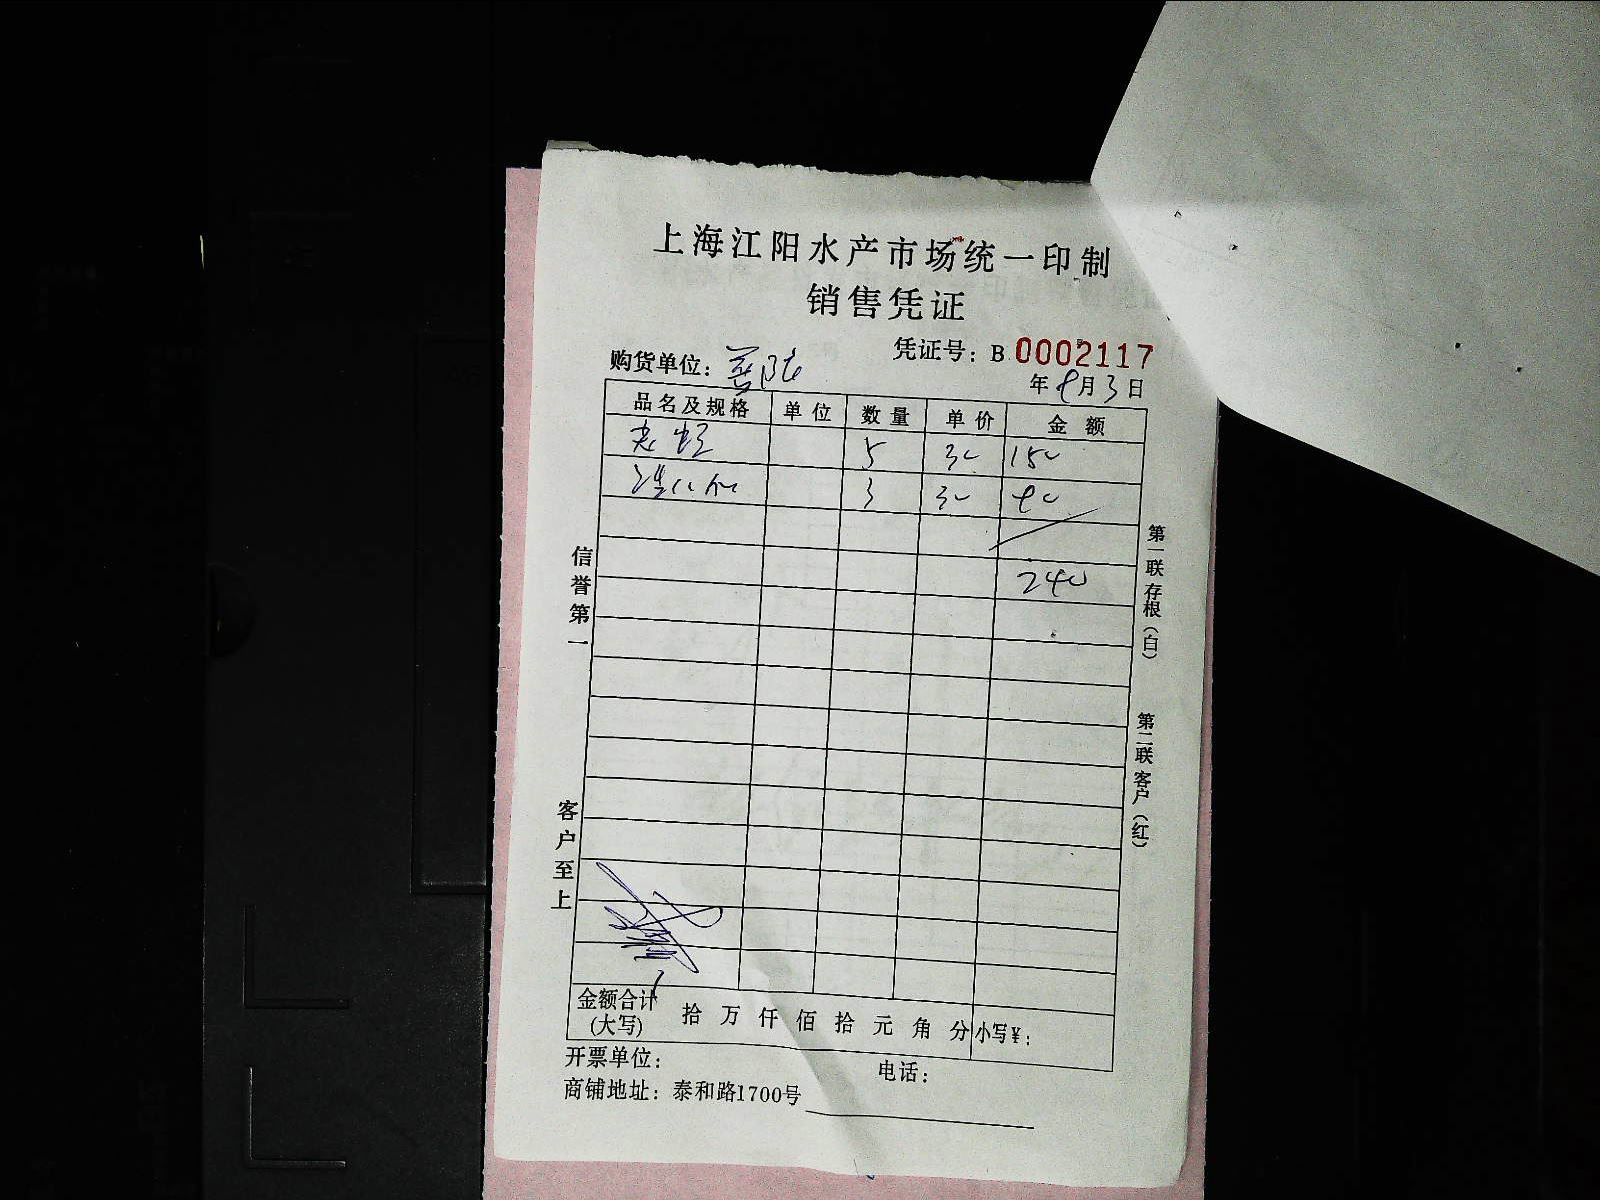 上海江阳水产市场统一印制
销售凭证
凭证号：B 0002117
购货单位：
年 8月3日
品名及规格 单位 数量 单价 金额
5 30 150
3 30 90
240
信誉第一
客户至上
第一联存根（白）
第二联客户（红）
金额合计（大写） 拾 万 仟 佰 拾 元 角 分 小写¥：
开票单位： 电话：
商铺地址：泰和路1700号